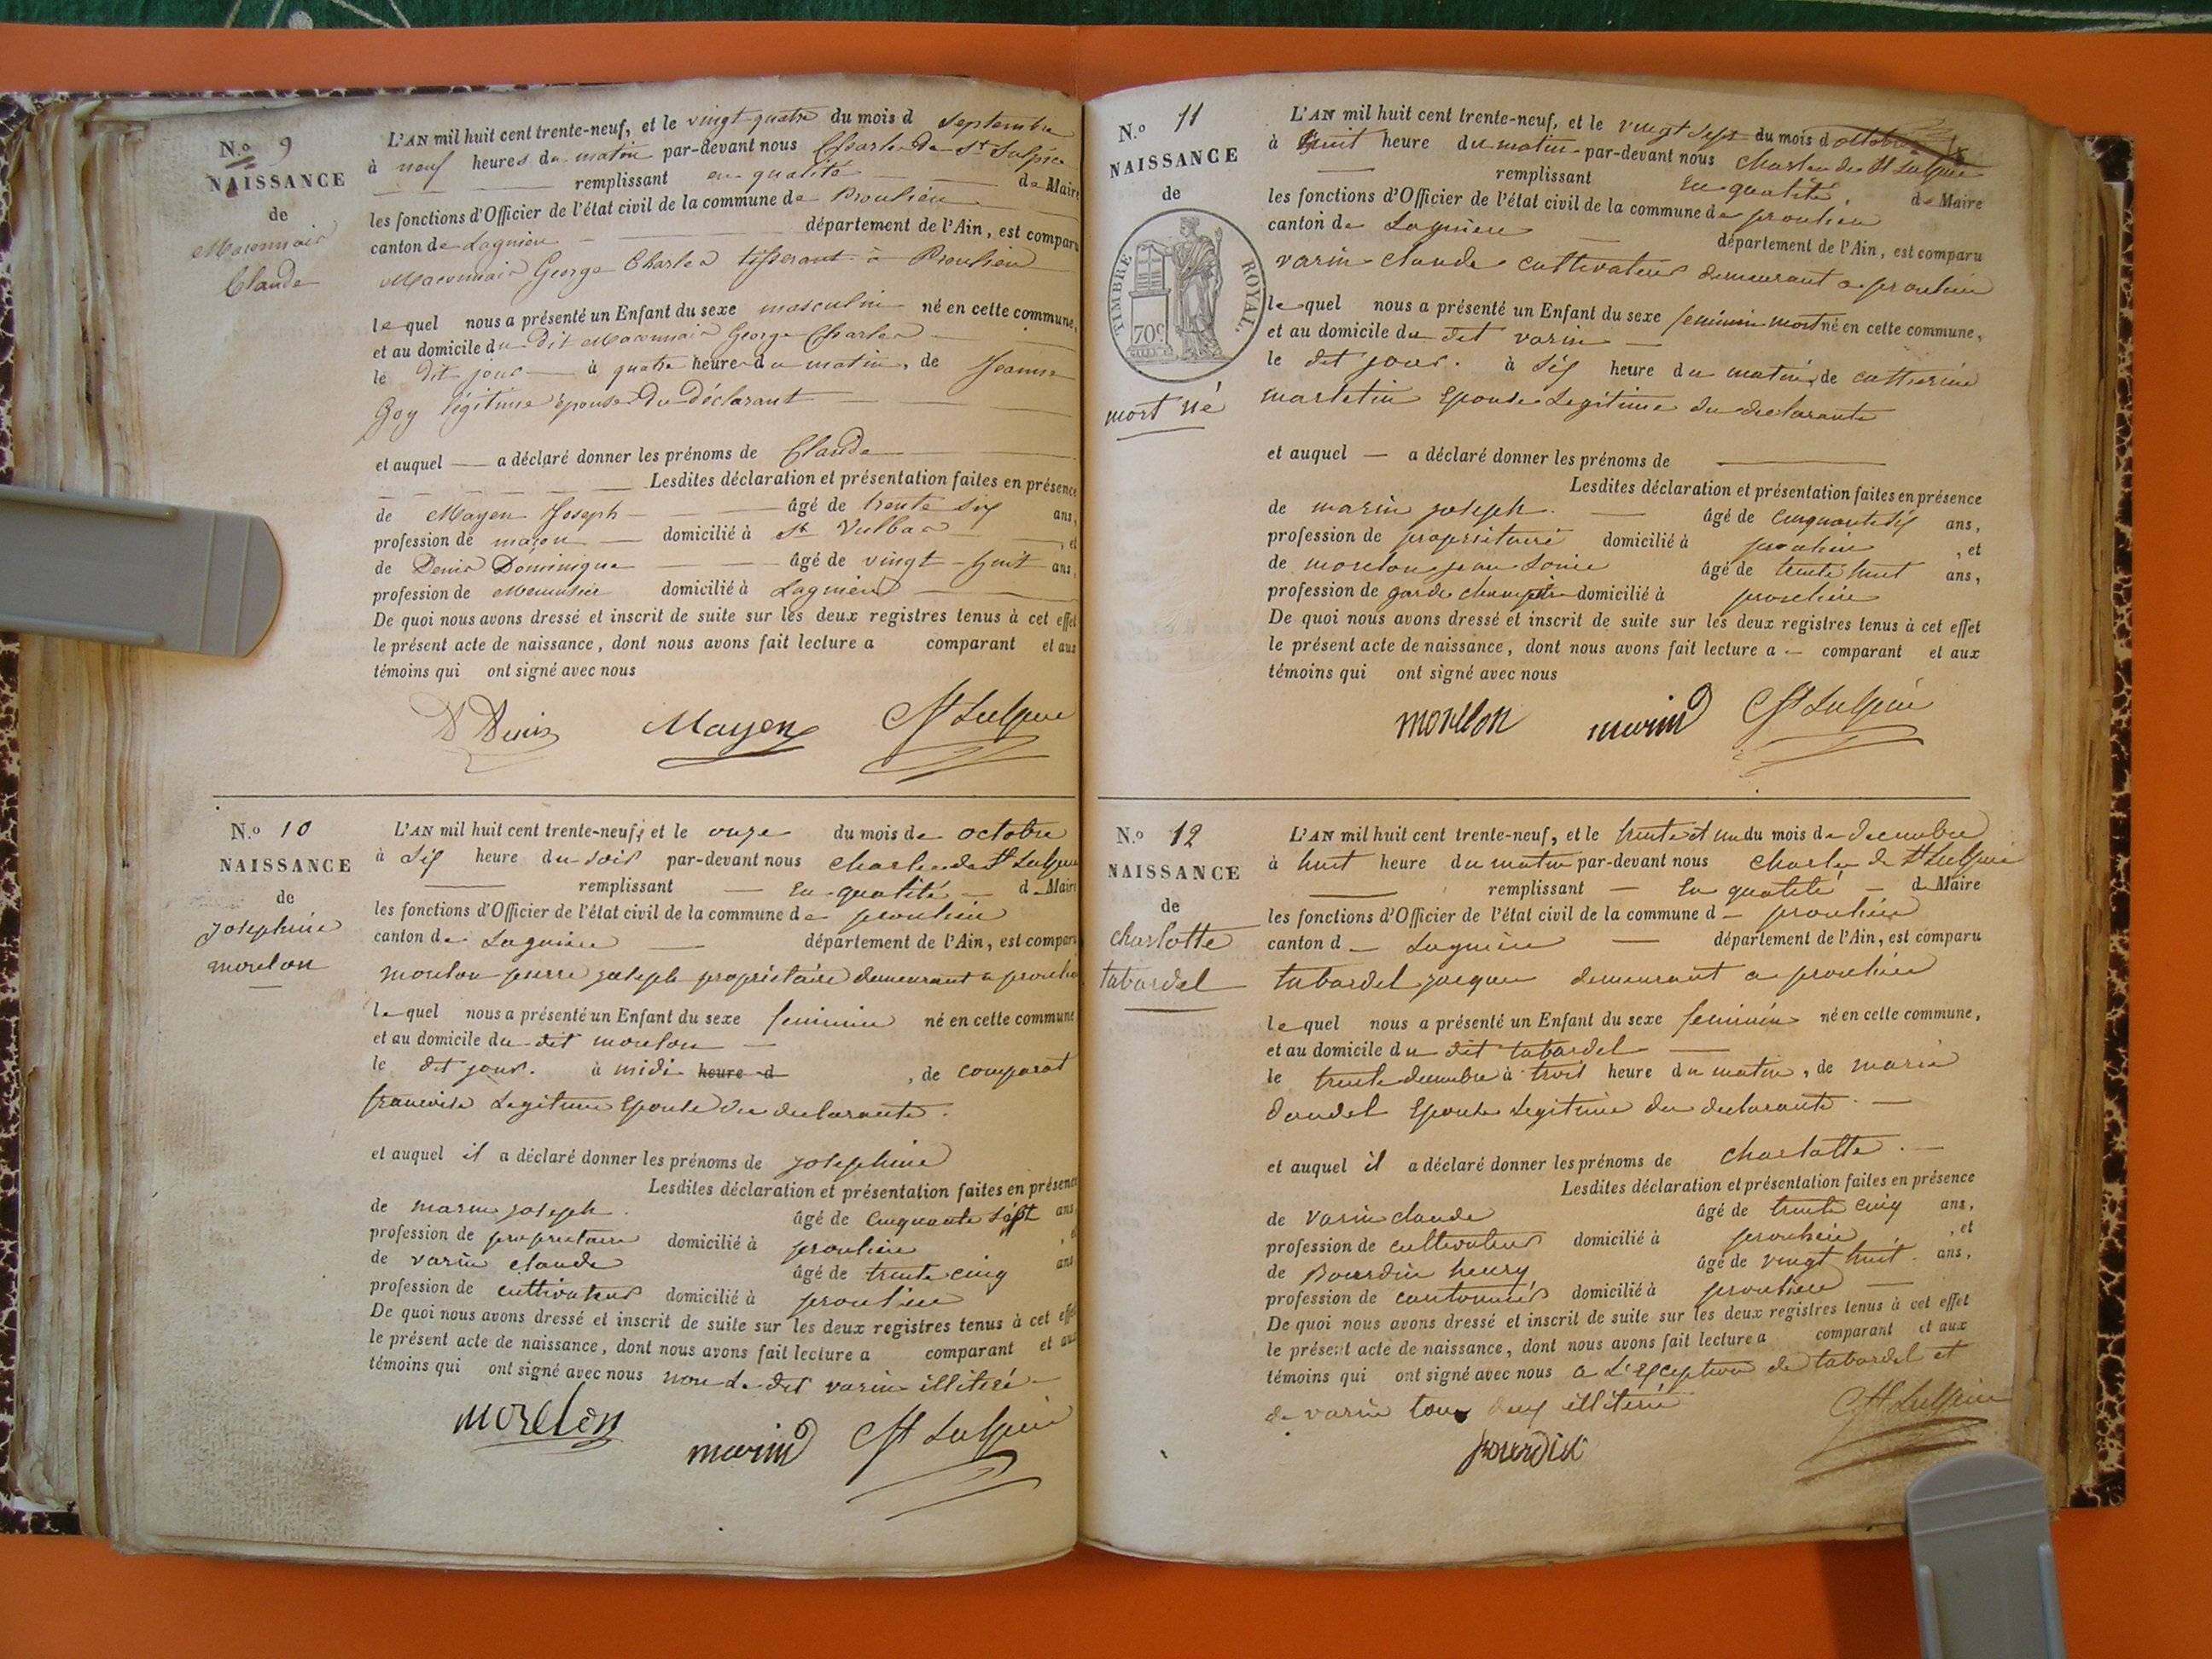 N.o 9
NAISSANCE
de
Maconnais
Claude
L'AN mil huit cent trente-neuf, et le vingt quatre du mois d Septembre
à neuf heures du matin par-devant nous Charles de St Sulpice
remplissant en qualité de Maire
les fonctions d'Officier de l'état civil de la commune de Proulieu
canton de Lagnieu département de l'Ain, est comparu
Maconnais George Charles tisserant à Proulieu
lequel nous a présenté un Enfant du sexe masculin né en cette commune,
et au domicile du dit Maconnais George Charles
le dit jour à quatre heure du matin, de Jeanne
Goy légitime épouse du déclarant
et auquel a déclaré donner les prénoms de Claude
Lesdites déclaration et présentation faites en présence
de Mayen Joseph âgé de trente six ans,
profession de maçon domicilié à St Vulbas, et
de Denis Dominique âgé de vingt-huit ans,
profession de Menuisier domicilié à Lagnieu
De quoi nous avons dressé et inscrit de suite sur les deux registres tenus à cet effet
le présent acte de naissance, dont nous avons fait lecture a comparant et aux
témoins qui ont signé avec nous
D Denis Mayen C St Sulpice
N.o 10
NAISSANCE
de
josephine
morelon
L'AN mil huit cent trente-neuf, et le onze du mois de octobre
à Six heure du soir par-devant nous charles de St Sulpice
remplissant en qualité d Maire
les fonctions d'Officier de l'état civil de la commune de proulieu
canton de Lagnieu département de l'Ain, est comparu
morelon pierre joseph propriétaire demeurant a proulieu
lequel nous a présenté un Enfant du sexe feminin né en cette commune
et au domicile du dit morelon
le dit jour. à midi heure d, de comparat
francoise Legitime Epouse du declarante.
et auquel il a déclaré donner les prénoms de josephine
Lesdites déclaration et présentation faites en présence
de marin joseph. âgé de cinquante sept ans,
profession de propriétaire domicilié à proulieu, et
de varin claude âgé de trente cinq ans
profession de cultivateur domicilié à proulieu
De quoi nous avons dressé et inscrit de suite sur les deux registres tenus à cet effet
le présent acte de naissance, dont nous avons fait lecture a comparant et aux
témoins qui ont signé avec nous non le dit varin illiteré
morelon marin C St Sulpice
N.o 11
NAISSANCE
de
TIMBRE ROYAL.
70c.
mort né
L'AN mil huit cent trente-neuf, et le vingt sept du mois d octobre
à huit heure du matin par-devant nous charles de St Sulpice
remplissant en qualité de Maire
les fonctions d'Officier de l'état civil de la commune de proulieu
canton de Lagnieu département de l'Ain, est comparu
varin claude cultivateur demeurant a proulieu
lequel nous a présenté un Enfant du sexe feminin mort né en cette commune,
et au domicile du dit varin
le dit jour. à Six heure du matin, de catherine
martetin Epouse Legitime du declarante
et auquel a déclaré donner les prénoms de
Lesdites déclaration et présentation faites en présence
de marin joseph. âgé de cinquante six ans,
profession de propriétaire domicilié à proulieu, et
de morelon jean Louis âgé de trente huit ans,
profession de garde champêtre domicilié à proulieu
De quoi nous avons dressé et inscrit de suite sur les deux registres tenus à cet effet
le présent acte de naissance, dont nous avons fait lecture a comparant et aux
témoins qui ont signé avec nous
morelon marin C St Sulpice
N.o 12
NAISSANCE
de
charlotte
tabardel
L'AN mil huit cent trente-neuf, et le trente et un du mois de decembre
à huit heure du matin par-devant nous charles de St Sulpice
remplissant en qualité de Maire
les fonctions d'Officier de l'état civil de la commune d proulieu
canton d Lagnieu département de l'Ain, est comparu
tabardel jacque demeurant a proulieu
lequel nous a présenté un Enfant du sexe feminin né en cette commune,
et au domicile du dit tabardel
le trente decembre à trois heure du matin, de marie
Epouse Legitime du declarante
et auquel il a déclaré donner les prénoms de charlotte.
Lesdites déclaration et présentation faites en présence
de varin claude âgé de trente cinq ans,
profession de cultivateur domicilié à proulieu, et
de Bourdin henry âgé de vingt huit ans,
profession de cantonnier domicilié à proulieu
De quoi nous avons dressé et inscrit de suite sur les deux registres tenus à cet effet
le présent acte de naissance, dont nous avons fait lecture a comparant et aux
témoins qui ont signé avec nous a L'exception de tabardel et
de varin tous deux illiteré C St Sulpice
Bourdin